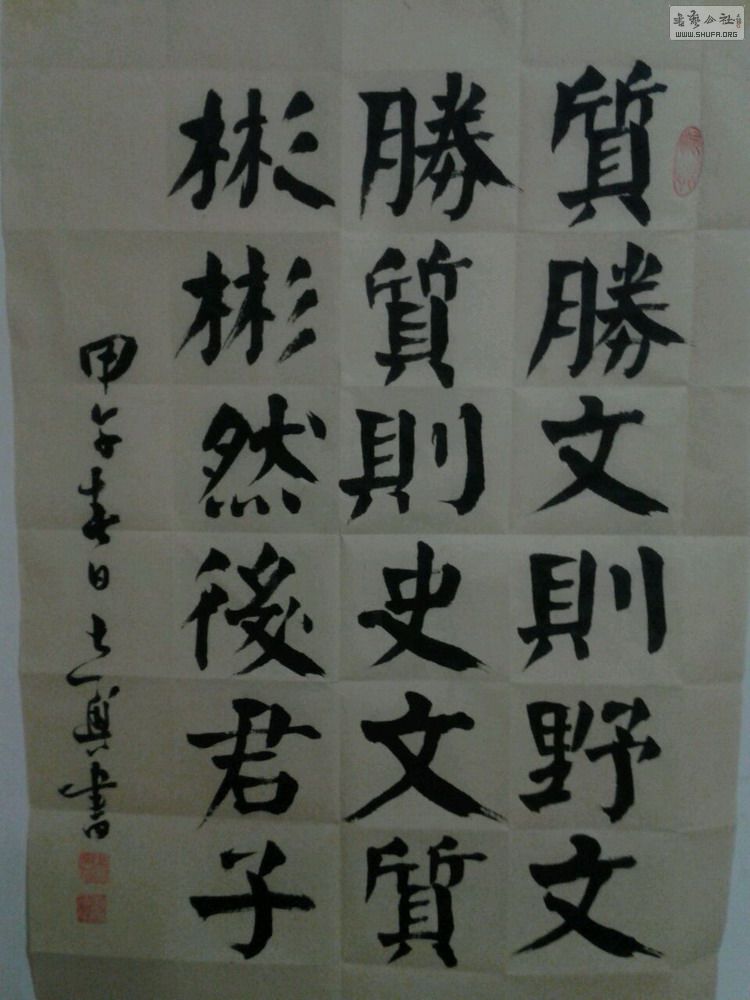 質勝文則野文
勝質則史文質
彬彬然後君子
甲午春日 書
WWW.SHUFA.ORG